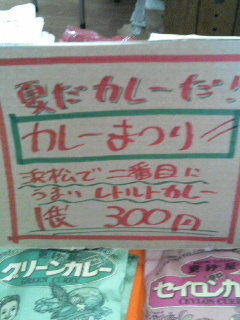 夏だカレーだ!!
カレーまつり
浜松で二番目に
うまいレトルトカレー
1袋 300円
グリーンカレー
GREEN CURRY
セイロンカ
CEYLON CURR